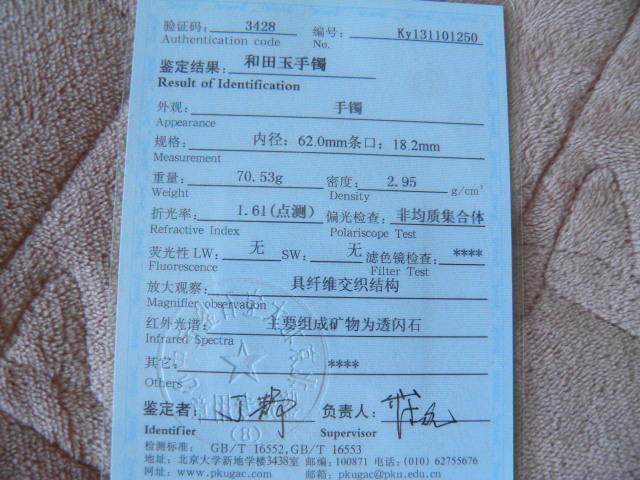 验证码: 3428 编号: Ky131101250
Authentication code No.
鉴定结果: 和田玉手镯
Result of Identification
外观: 手镯
Appearance
规格: 内径: 62.0mm条口: 18.2mm
Measurement
重量: 70.53g 密度: 2.95 g/cm³
Weight Density
折光率: 1.61(点测) 偏光检查: 非均质集合体
Refractive Index Polariscope Test
荧光性 LW: 无 SW: 无 滤色镜检查: ****
Fluorescence Filter Test
放大观察: 具纤维交织结构
Magnifier observation
红外光谱: 主要组成矿物为透闪石
Infrared Spectra
其它: ****
Others
鉴定者: 负责人:
Identifier Supervisor
(8)
检测标准: GB/T 16552,GB/T 16553
地址: 北京大学新地学楼3438室 邮编: 100871 电话: (010) 62755676
网址: www.pkugac.com 邮箱: pkugac@pku.edu.cn